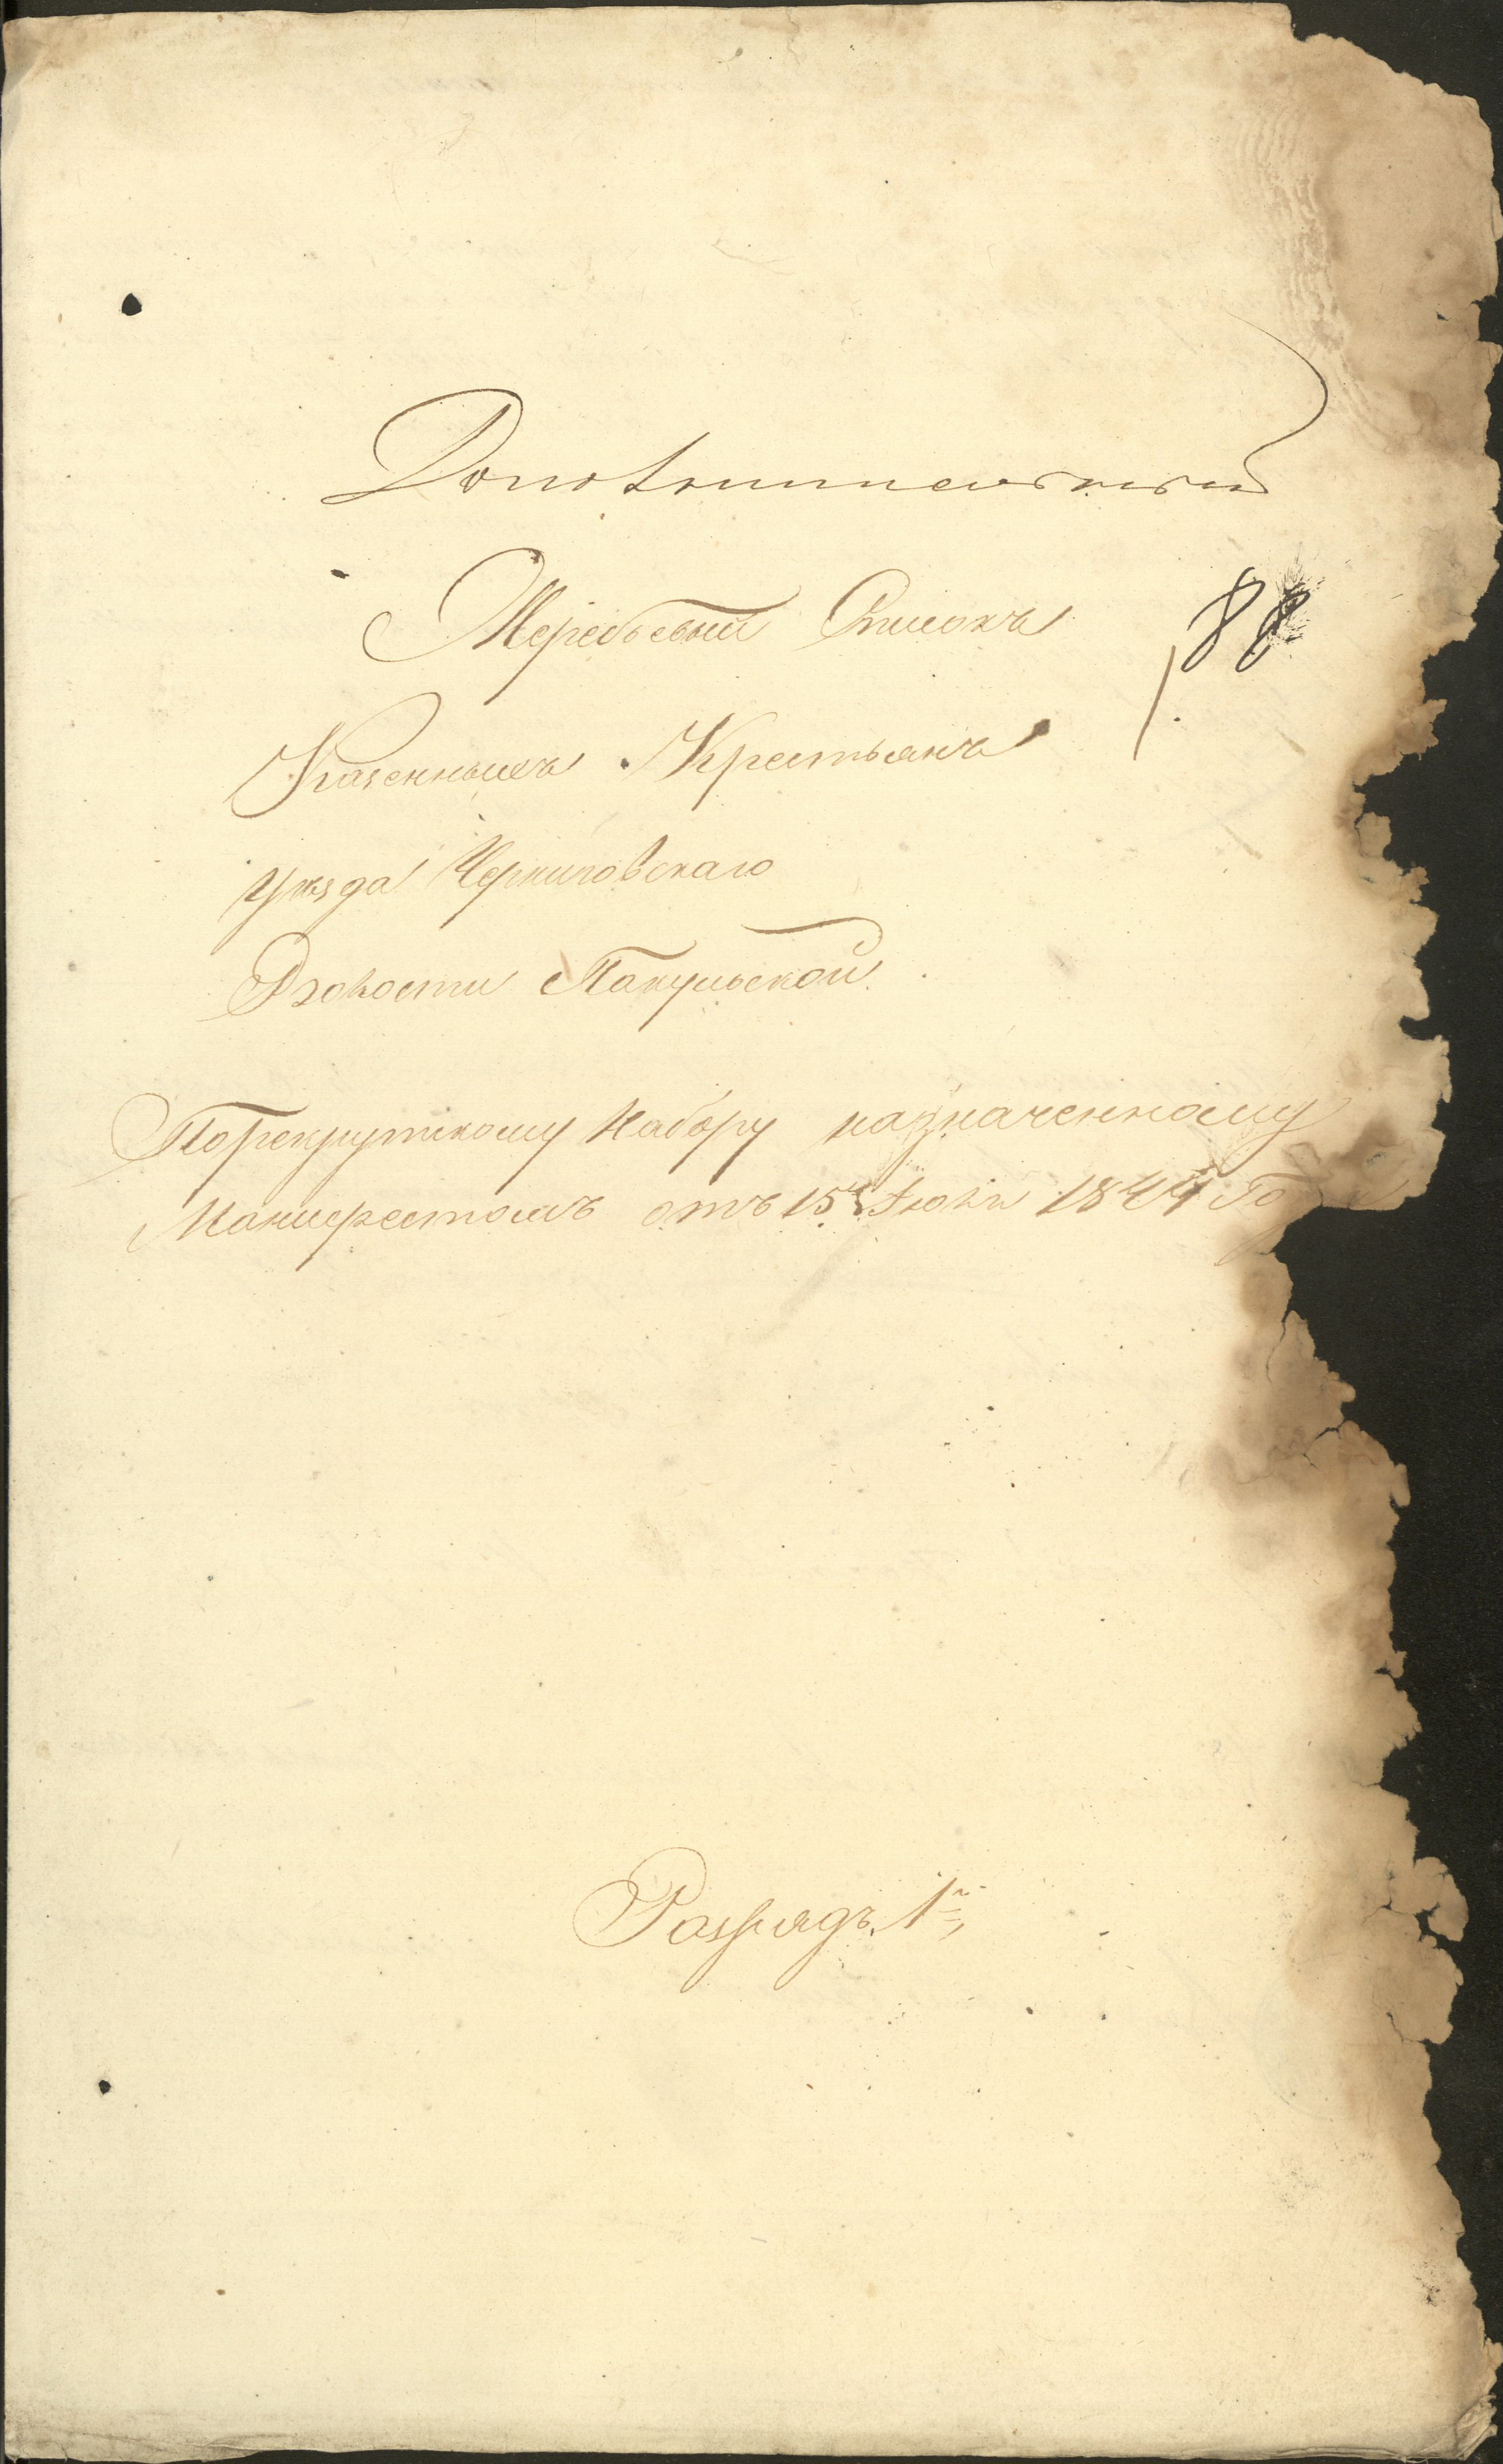 Дополнительный
Жеребьевый Списокъ
88
1.
Казенныхъ Крестьянъ
Уѣзда Черниговскаго
Волости Пакульской.
Порекрутскому Набору назначенному
Манифестомъ отъ 15 Іюля 1844 Го
Разрядъ 1й